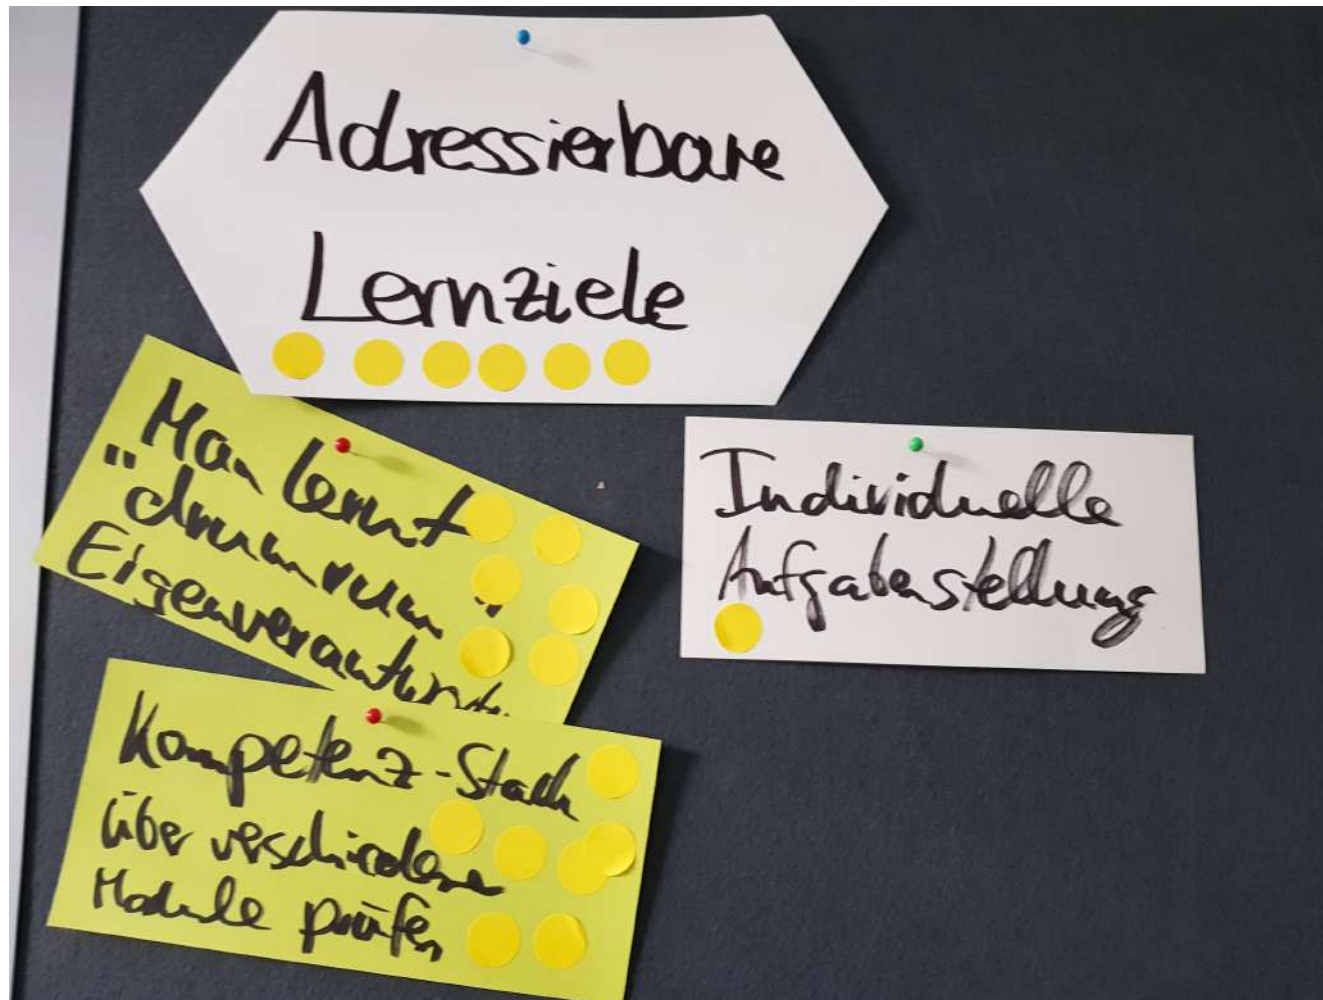 Adressierbare
Lernziele
Man lernt
"drumrum"
Eigenverantwortl.
Individuelle
Aufgabenstellung
Kompetenz-Stack
über verschiedene
Module prüfen